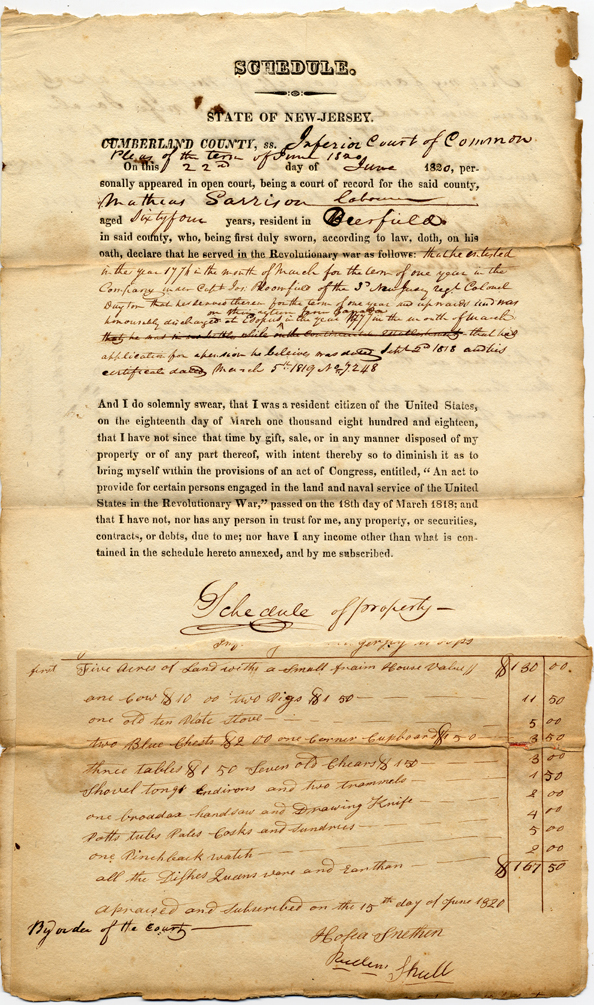 SCHEDULE.
STATE OF NEW-JERSEY.
CUMBERLAND COUNTY, ss. Inferior Court of Common
Pleas of the term of June 1820
On this 22nd day of June 1820, per-
sonally appeared in open court, being a court of record for the said county,
Mathias Garrison labourer
aged Sixtyfour years, resident in Deerfield
in said county, who, being first duly sworn, according to law, doth, on his
oath, declare that he served in the Revolutionary war as follows: that he enlisted
in the year 1776 in the month of March for the term of one year in the
Company under Capt Jos. Bloomfield of the 3d New Jersey regt Colonel
Dayton that he served therein for the term of one year and upwards and was
on the return from
honourably discharged at in the year 1777 in the month of March
that he that his
application for a pension he believes was dated Sept 2d 1818 and his
certificate dated March 5th 1819 No 7248
And I do solemnly swear, that I was a resident citizen of the United States,
on the eighteenth day of March one thousand eight hundred and eighteen,
that I have not since that time by gift, sale, or in any manner disposed of my
property or of any part thereof, with intent thereby so to diminish it as to
bring myself within the provisions of an act of Congress, entitled, “An act to
provide for certain persons engaged in the land and naval service of the United
States in the Revolutionary War,” passed on the 18th day of March 1818; and
that I have not, nor has any person in trust for me, any property, or securities,
contracts, or debts, due to me; nor have I any income other than what is con-
tained in the schedule hereto annexed, and by me subscribed.
Schedule of property
first Five Acres of Land with a Small fraim House Value $130 00.
one Cow $10 00 two Pigs $1 50 11 50
one old ten Plate Stove 5 00
two Blue Chests $2 00 one Corner Cupboard $1 50 3 50
three tables $1 50 Seven old Chears $1 50 3 00
Shovel tongs Endirons and two trammels 1 50
one broadax handsaw and Drawing Knife 2 00
Potts tubs Pales Casks and Sundries 4 00
one Pinchback watch 5 00
all the Dishes Queans ware and Earthan 2 00
$167 50
appraised and Subscribed on the 15th day of June 1820
By order of the Court
Hosea Snethen
Reuben Shull